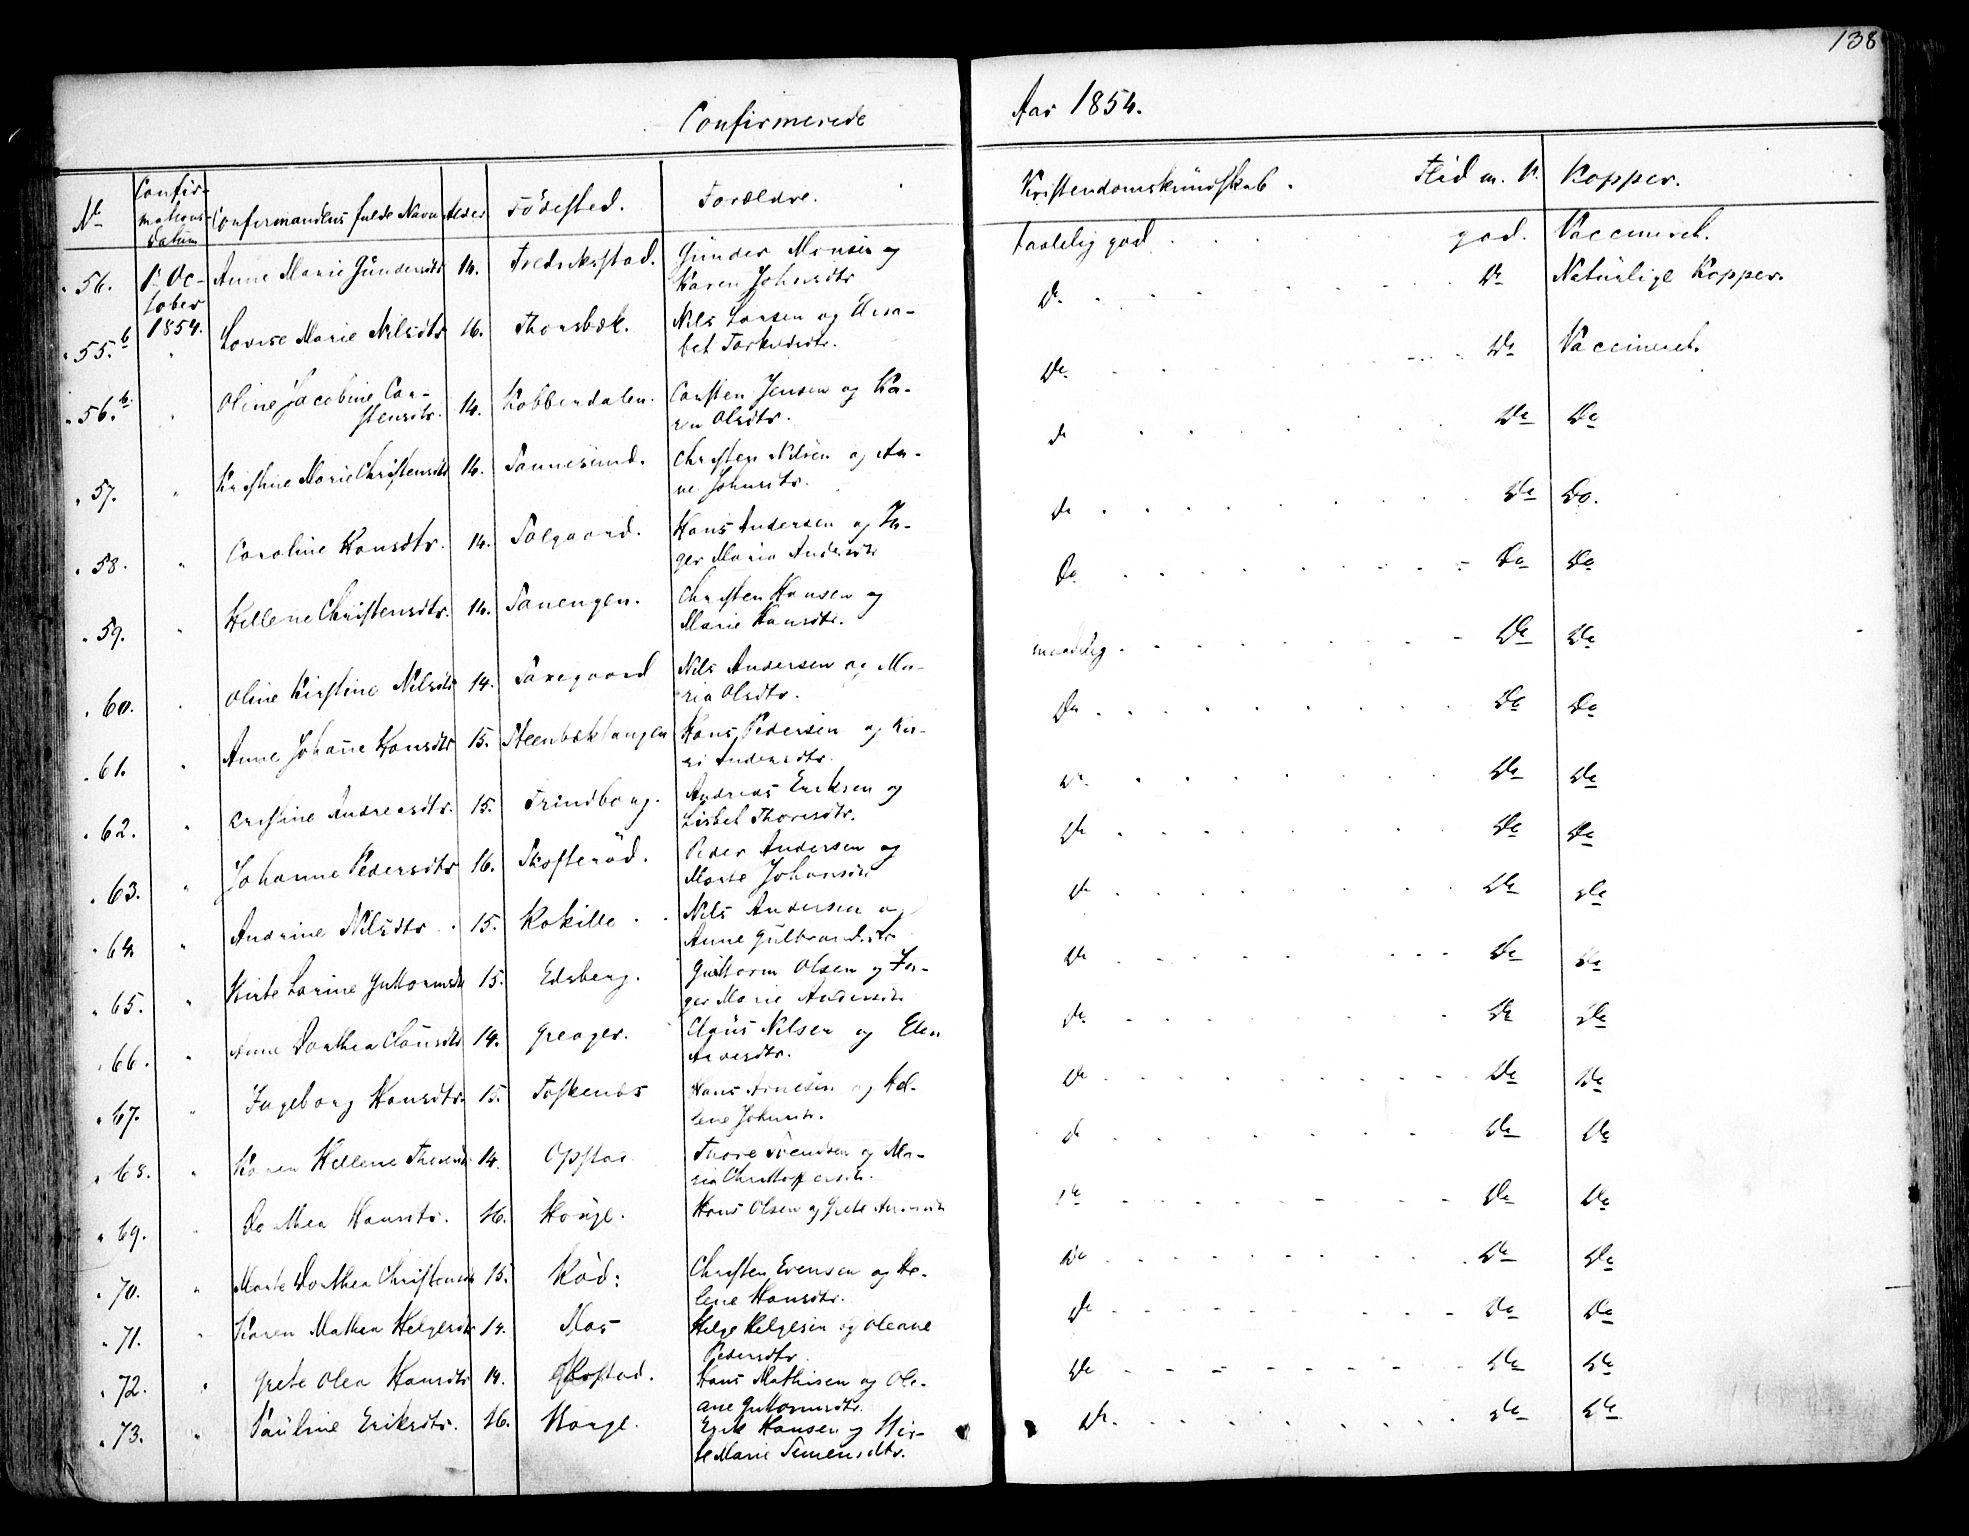 138
Confirmerede
Aar 1854.
No Confirmations Datum Confirmandens fulde Navn Alder Födested. Forældre. Kristendomskundskab. Flid m. V. Kopper.
56. 1. October 1854. Anne Marie Gundersdtr 14. Fredrikstad. Gunder Monsen og
Karen Johnsdtr taalelig god god. Vaccineret.
55.b " Lovise Marie Nilsdtr 16. Thorsbæk. Nils Larsen og Elisa-
bet Torkildsdtr. Do Do Naturlige Kopper.
56.b " Oline Jacobine Car-
stensdtr. 14. Kobberdalen. Carsten Jensen og Ka-
ren Olsdtr. Do Do Vaccineret.
57. " Kristine Marie Christensdtr 14. Tannesund. Christen Nilsen og An-
ne Johnsdtr. Do Do Do
58. " Caroline Hansdtr. 14. Solgaard. Hans Andersen og In-
ger Maria Andersdtr Do Do Do.
59. " Hellene Christensdtr. 14. Tanengen. Christen Hansen og
Marie Hansdtr. Do Do Do
60. " Oline Kirstine Nilsdtr 14. Nils Andersen og Ma-
ria Olsdtr. maadelig Do Do
61. " Anne Johane Hansdtr 15. Steenbektangen Hans Pedersen og Ka-
ri Andersdtr. Do Do Do
62. " Cristine Andreasdtr. 15. Trindborg. Andreas Eriksen og
Lisbet Thoresdtr. Do Do Do
63. " Johanne Pedersdtr 16. Skofteröd. Peder Andersen og
Marte Johansdtr Do Do Do
64 " Andrine Nilsdtr. 15. Kokille. Nils Andersen og
Anne Gulbrandsdtr Do Do Do
65. " Kirte Larine Guttormsdtr 15. Edsberg. Guttorm Olsen og In-
ger Marie Andersdtr Do Do Do
66. " Anne Dorthea Clausdtr 14. Greager. Claus Nilsen og Elen
Arnesdtr. Do Do Do
67. " Ingeborg Hansdtr. 15. Toskenæs Hans Arnesen og Hel-
lene Johnsdtr. Do Do Do
68. " Karen Hellene Thoresdtr 14. Opstad Thore Svendsen og Ma-
ria Christoffersdtr. Do Do Do
69. " Dorthea Hansdtr. 16. Hauge. Hans Olsen og Grete Do Do Do
70. " Marte Dorthea Christensdtr 15. Röd: Christen Evensen og He-
lene Hansdtr. Do Do Do
71. " Karen Mathea Helgesdtr 14. Mos Helge Helgesen og Oleane
Pedersdtr. Do Do Do
72. " Grete Olea Hansdtr 14. Opstad. Hans Mathisen og Ole-
ane Guttormsdtr. Do Do Do
73. " Pauline Eriksdtr. 16. Hauge. Erik Hansen og Kir-
te Marie Simensdtr. Do Do Do